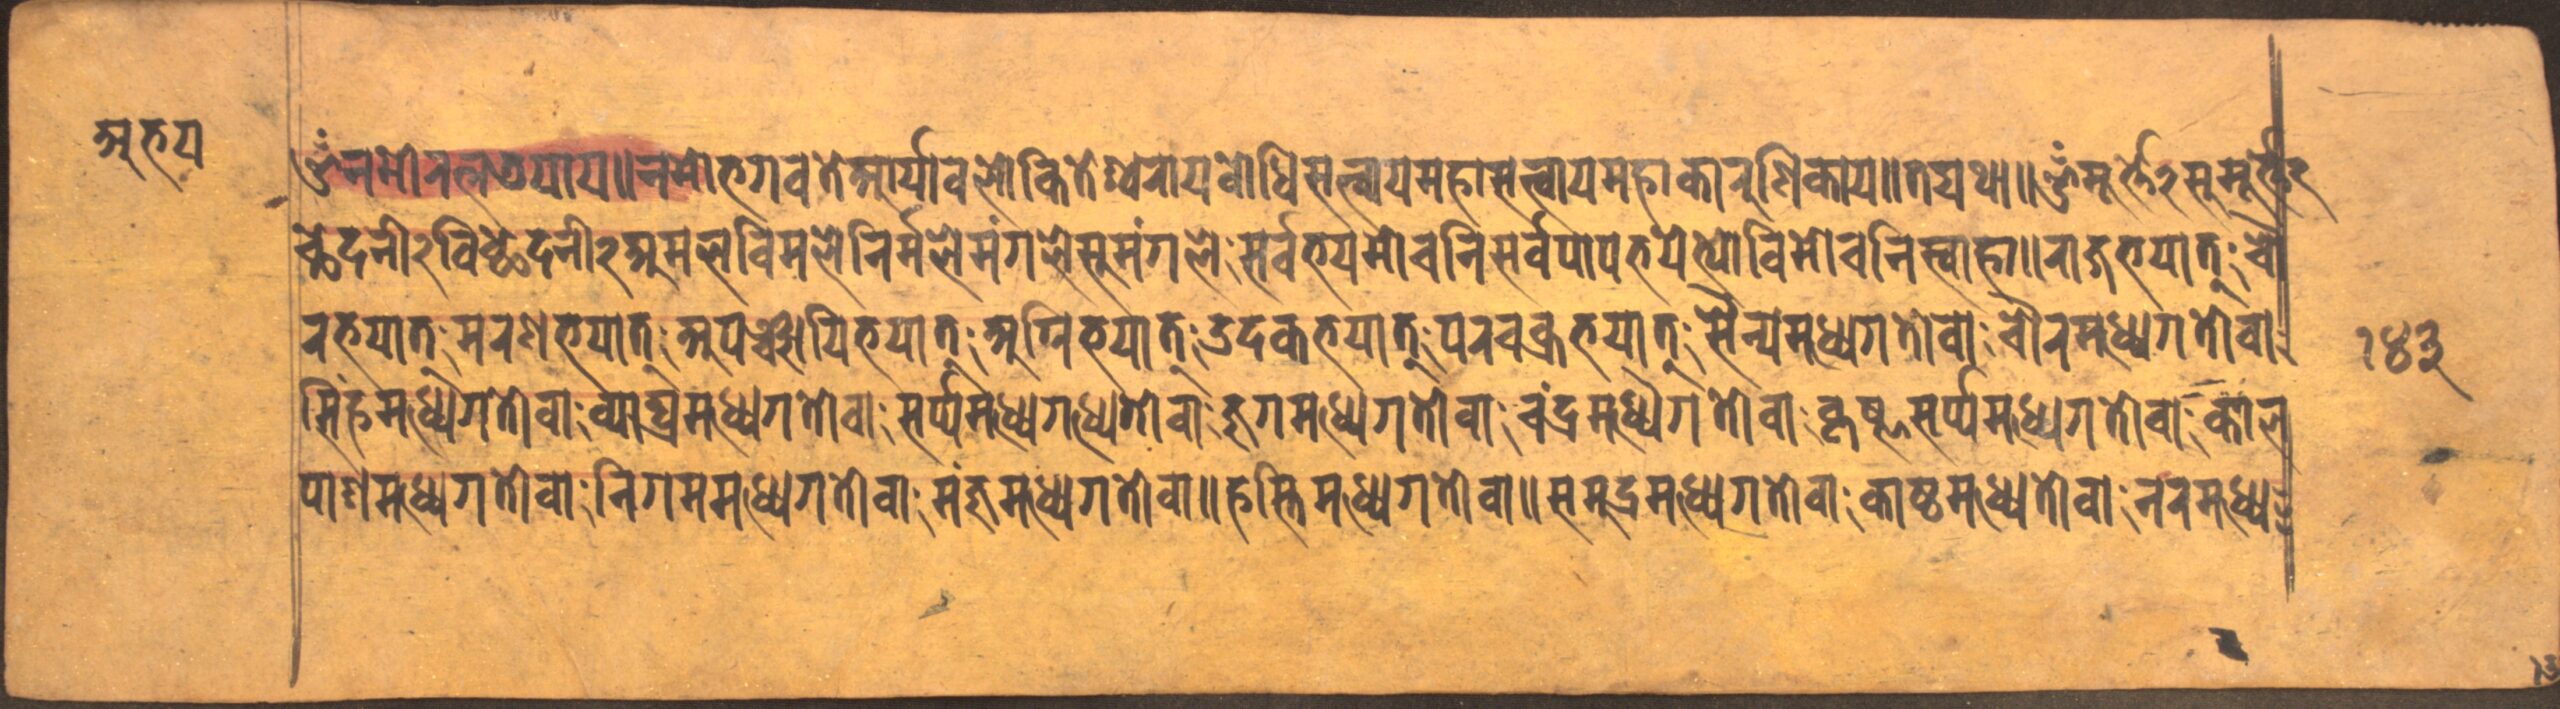 अभय
ॐ नमो रत्नत्रयाय॥ नमो भगवते आर्यावलोकितेश्वराय बोधिसत्त्वाय महासत्त्वाय महाकारुणिकाय॥ तद्यथा॥ ॐ मूर्त्ते२ सुमूर्त्ते२
च्छेदनी२ विच्छेदनी२ अमल विमले निर्मले मंगले सुमंगले: सर्वभयमोचनि सर्वपापभयेभ्यो विमोचनि स्वाहा॥ राजभयात्: चौ
रभयात्: मरणभयात्: अपस्थायिभयात्: अग्निभयात्: उदकभयात्: परचक्रभयात्: सैन्यमध्यगतो वा: चौरमध्यगतो वा:
सिंहमध्यगतो वा: व्याघ्रमध्यगतो वा: सर्प्पमध्यगध्यगतो वा: मृगमध्यगतो वा: चंद्रमध्यगतो वा: कृष्णसर्प्पमध्यगतो वा: काल
पाशमध्यगतो वा: निगममध्यगतो वा: मंजुमध्यगतो वा॥ हस्तिमध्यगतो वा॥ समुद्रमध्यगतो वा: काष्ठमध्यतो वा: नरमध्य:
१४३